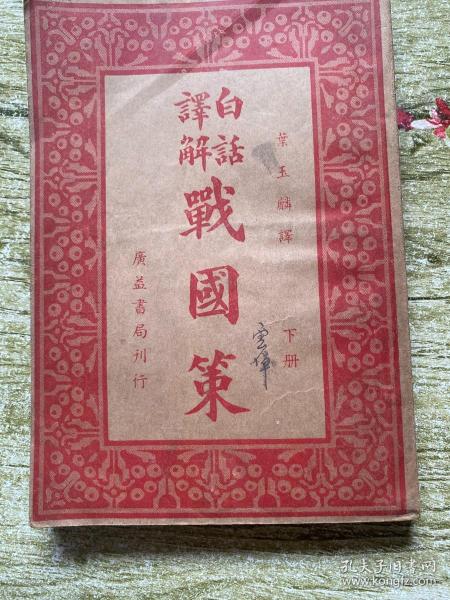 葉玉麟譯
下册
白話
譯解
戰國策
廣益書局刊行
孔夫子旧书网
www.kongfz.com